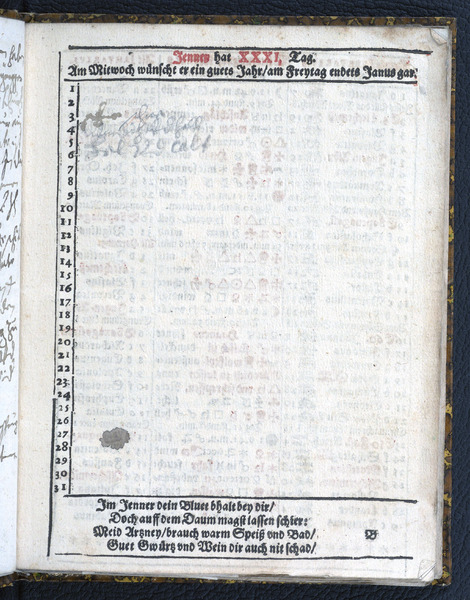 Jenner hat XXXI, Tag.
Am Mitwoch wünscht er ein guets Jahr/am Freytag endets Janus gar.
1
2
3
4
5
6
7
8
9
10
11
12
13
14
15
16
17
18
19
20
21
22
23
24
25
26
27
28
29
30
31
Im Jenner dein Bluet bhalt bey dir/
Doch auff dem Daum magst lassen schier:
Meid Artzney/brauch warm Speiß vnd Bad/
Guet Gwürtz vnd Wein dir auch nit schad/
B